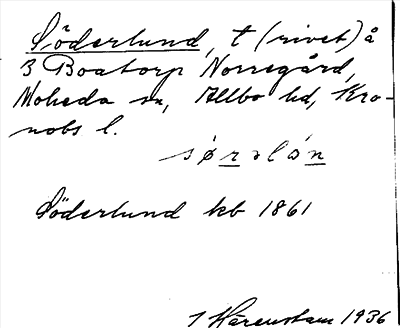 Söderlund, t (rivet) å
3 Boatorp Norregård,
Moheda sn, Allbo hd, Kro-
nobs l.
sørəlón
Söderlund kb 1861
Härenstam 1936